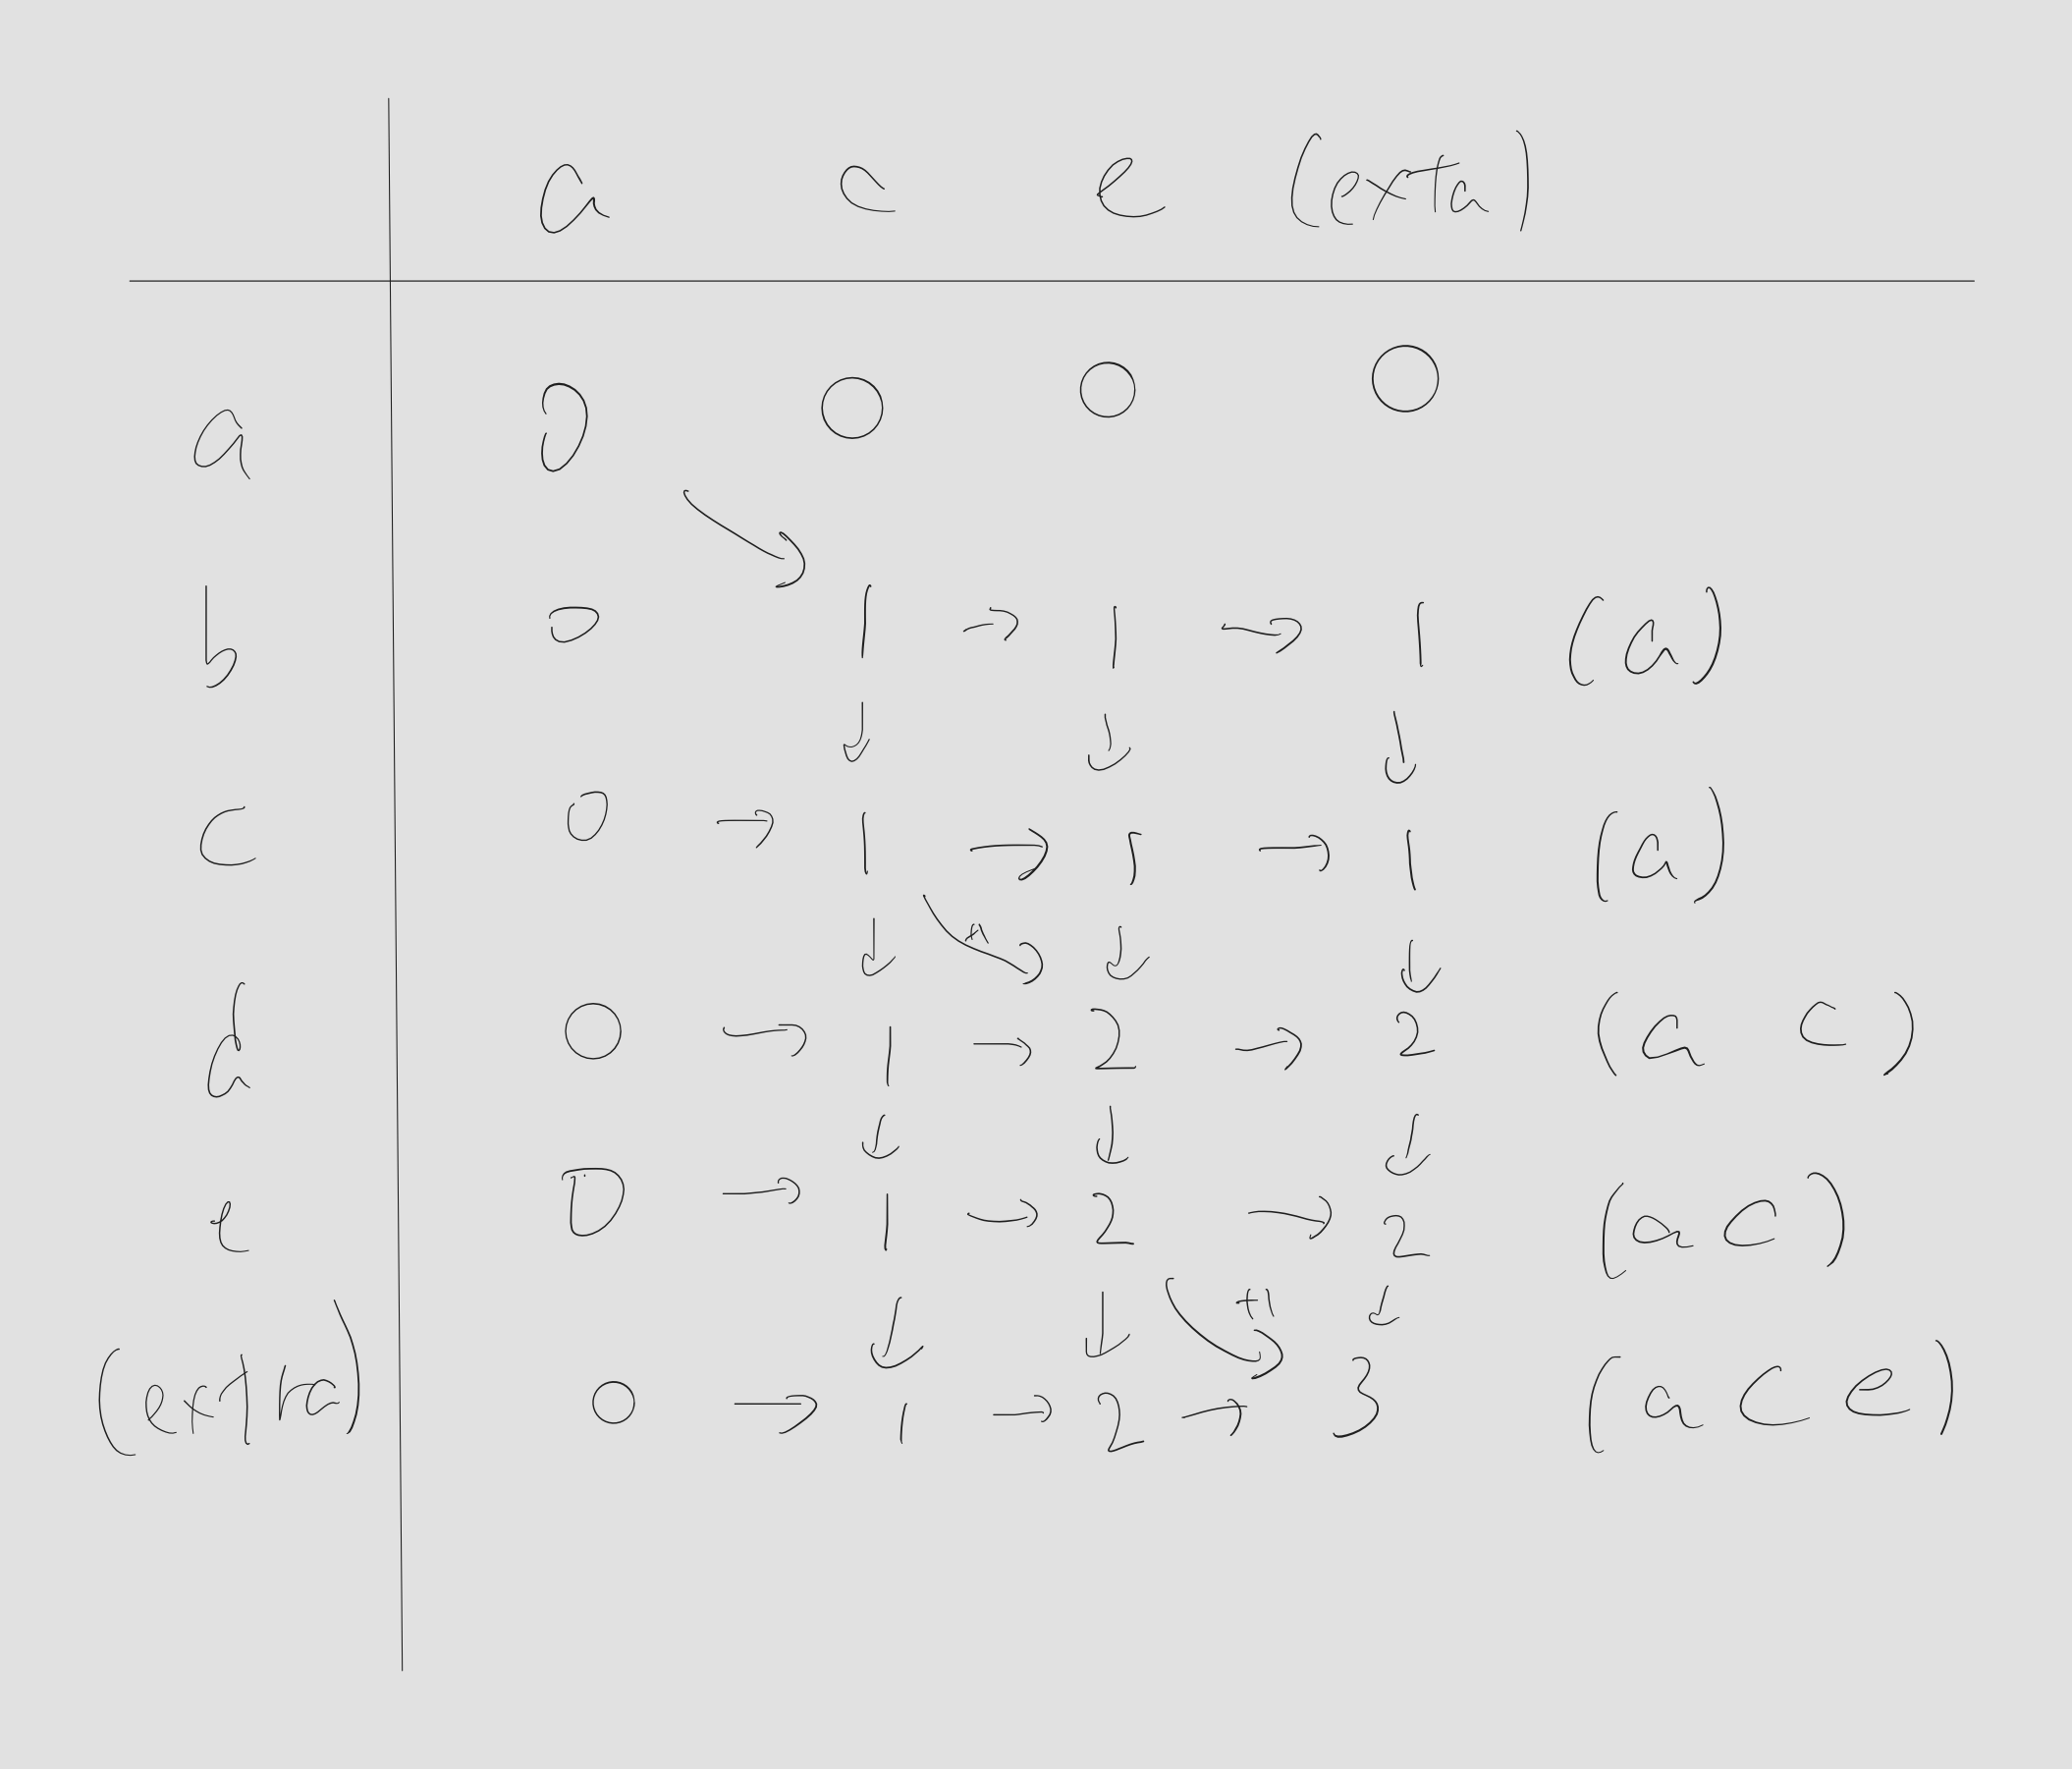 a c e (exta)
a 0 0 0 0
b 0 1 → 1 → 1 (a)
↓ ↓ ↓
c 0 → 1 → 1 → 1 (a)
↓ +1 ↓ ↓
d 0 → 1 → 2 → 2 (a c)
↓ ↓ ↓
e 0 → 1 → 2 → 2 (a c)
↓ ↓ +1 ↓
(extra) 0 → 1 → 2 → 3 (a c e)